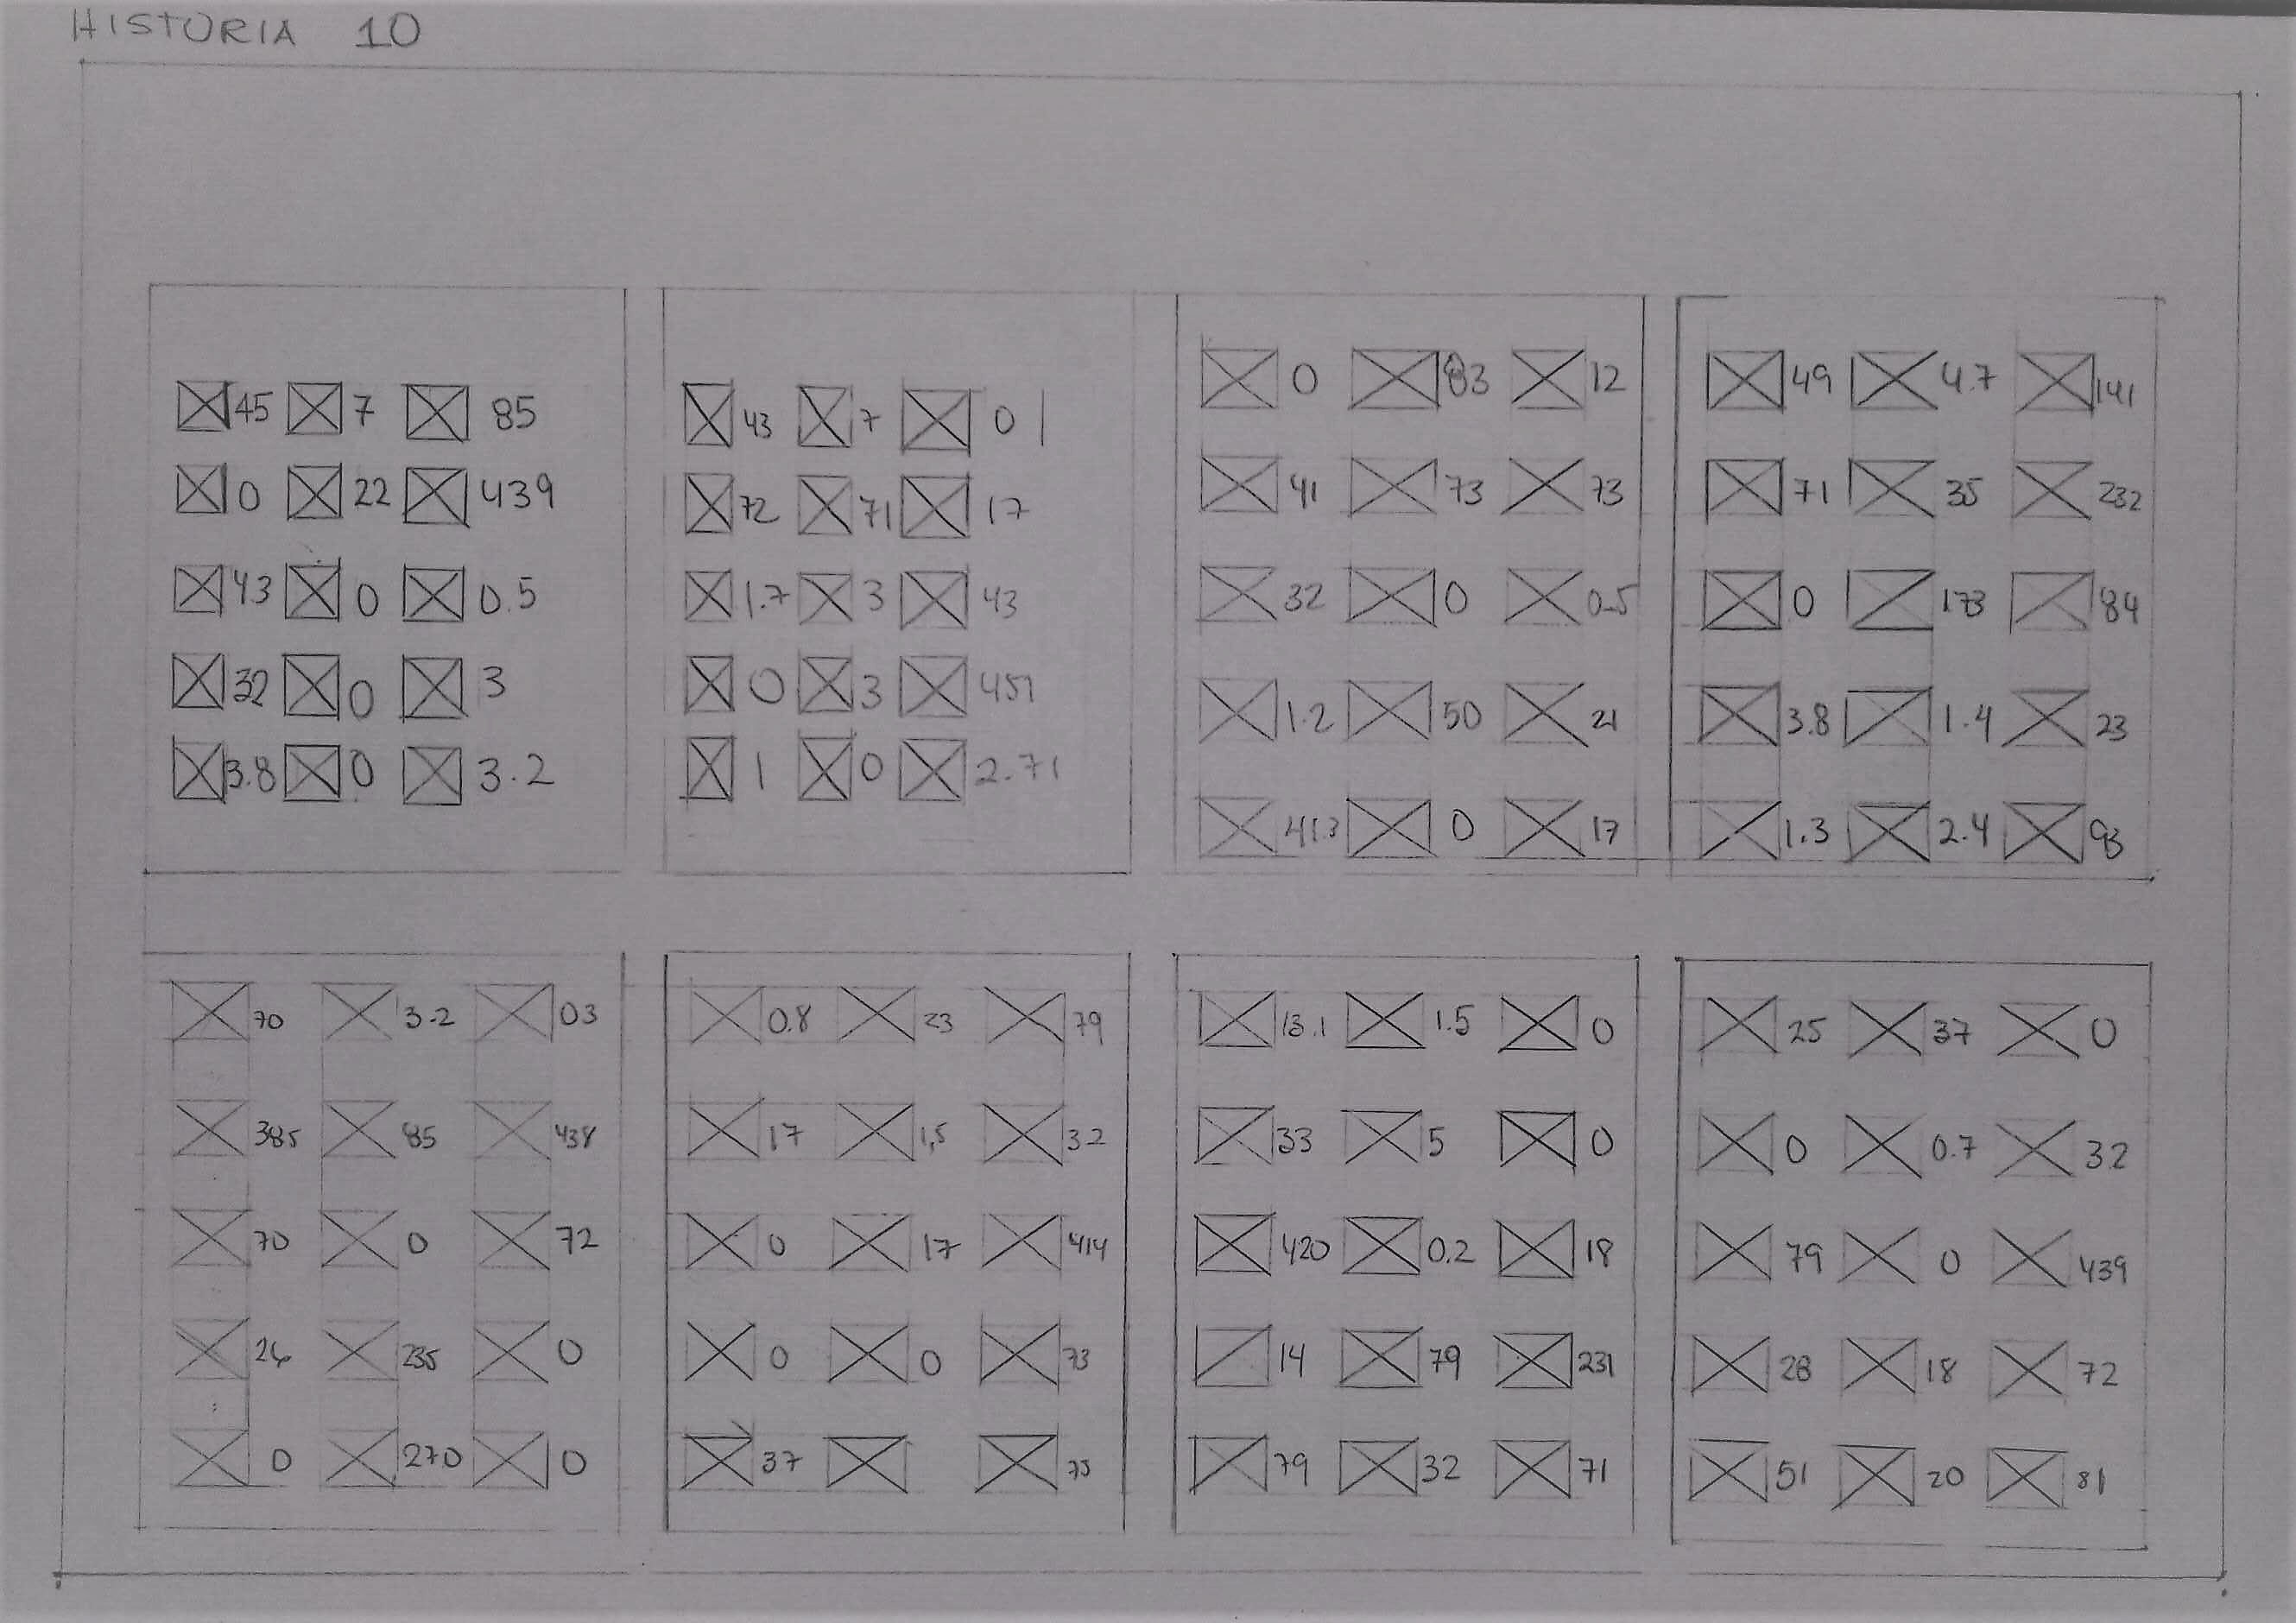 HISTORIA 10
45 7 85
0 22 439
43 0 0.5
32 0 3
3.8 0 3.2
43 7 0
72 71 17
1.7 3 43
0 3 451
1 0 2.71
0 83 12
41 73 73
32 0 0.5
1.2 50 21
41.3 0 17
49 4.7 141
71 35 232
0 173 84
3.8 1.4 23
1.3 2.4 93
70 3.2 03
385 85 438
70 0 72
26 235 0
0 270 0
0.8 23 79
17 1,5 32
0 17 414
0 0 73
37
13.1 1.5 0
33 5 0
420 0.2 18
14 79 231
79 32 71
25 37 0
0 0.7 32
79 0 439
28 18 72
51 20 81